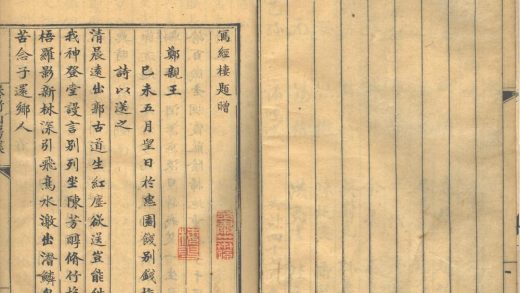 寫經樓題贈
鄭親王
己未五月望日於惠園餞別錢
詩以送之
清晨遠出郭古道生紅塵欲送豈能
我神登堂謾言別列坐陳芳醇脩行
梧羅影新林深引飛鳥水澂出潛鱗
苦念子還鄉人